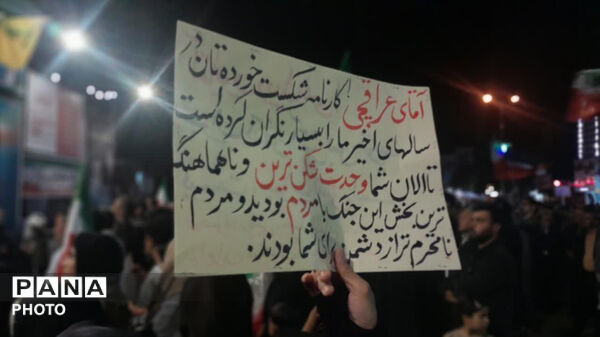 آقای عراقچی! کارنامه شکست خورده تان در
سالهای اخیر ما را بسیار نگران کرده است
تا الان شما وحدت شکن ترین و ناهماهنگ
ترین بخش این جنگ با مردم بودید و مردم
نامحرم تر از دشمن برای شما بودند.
PANA
PHOTO